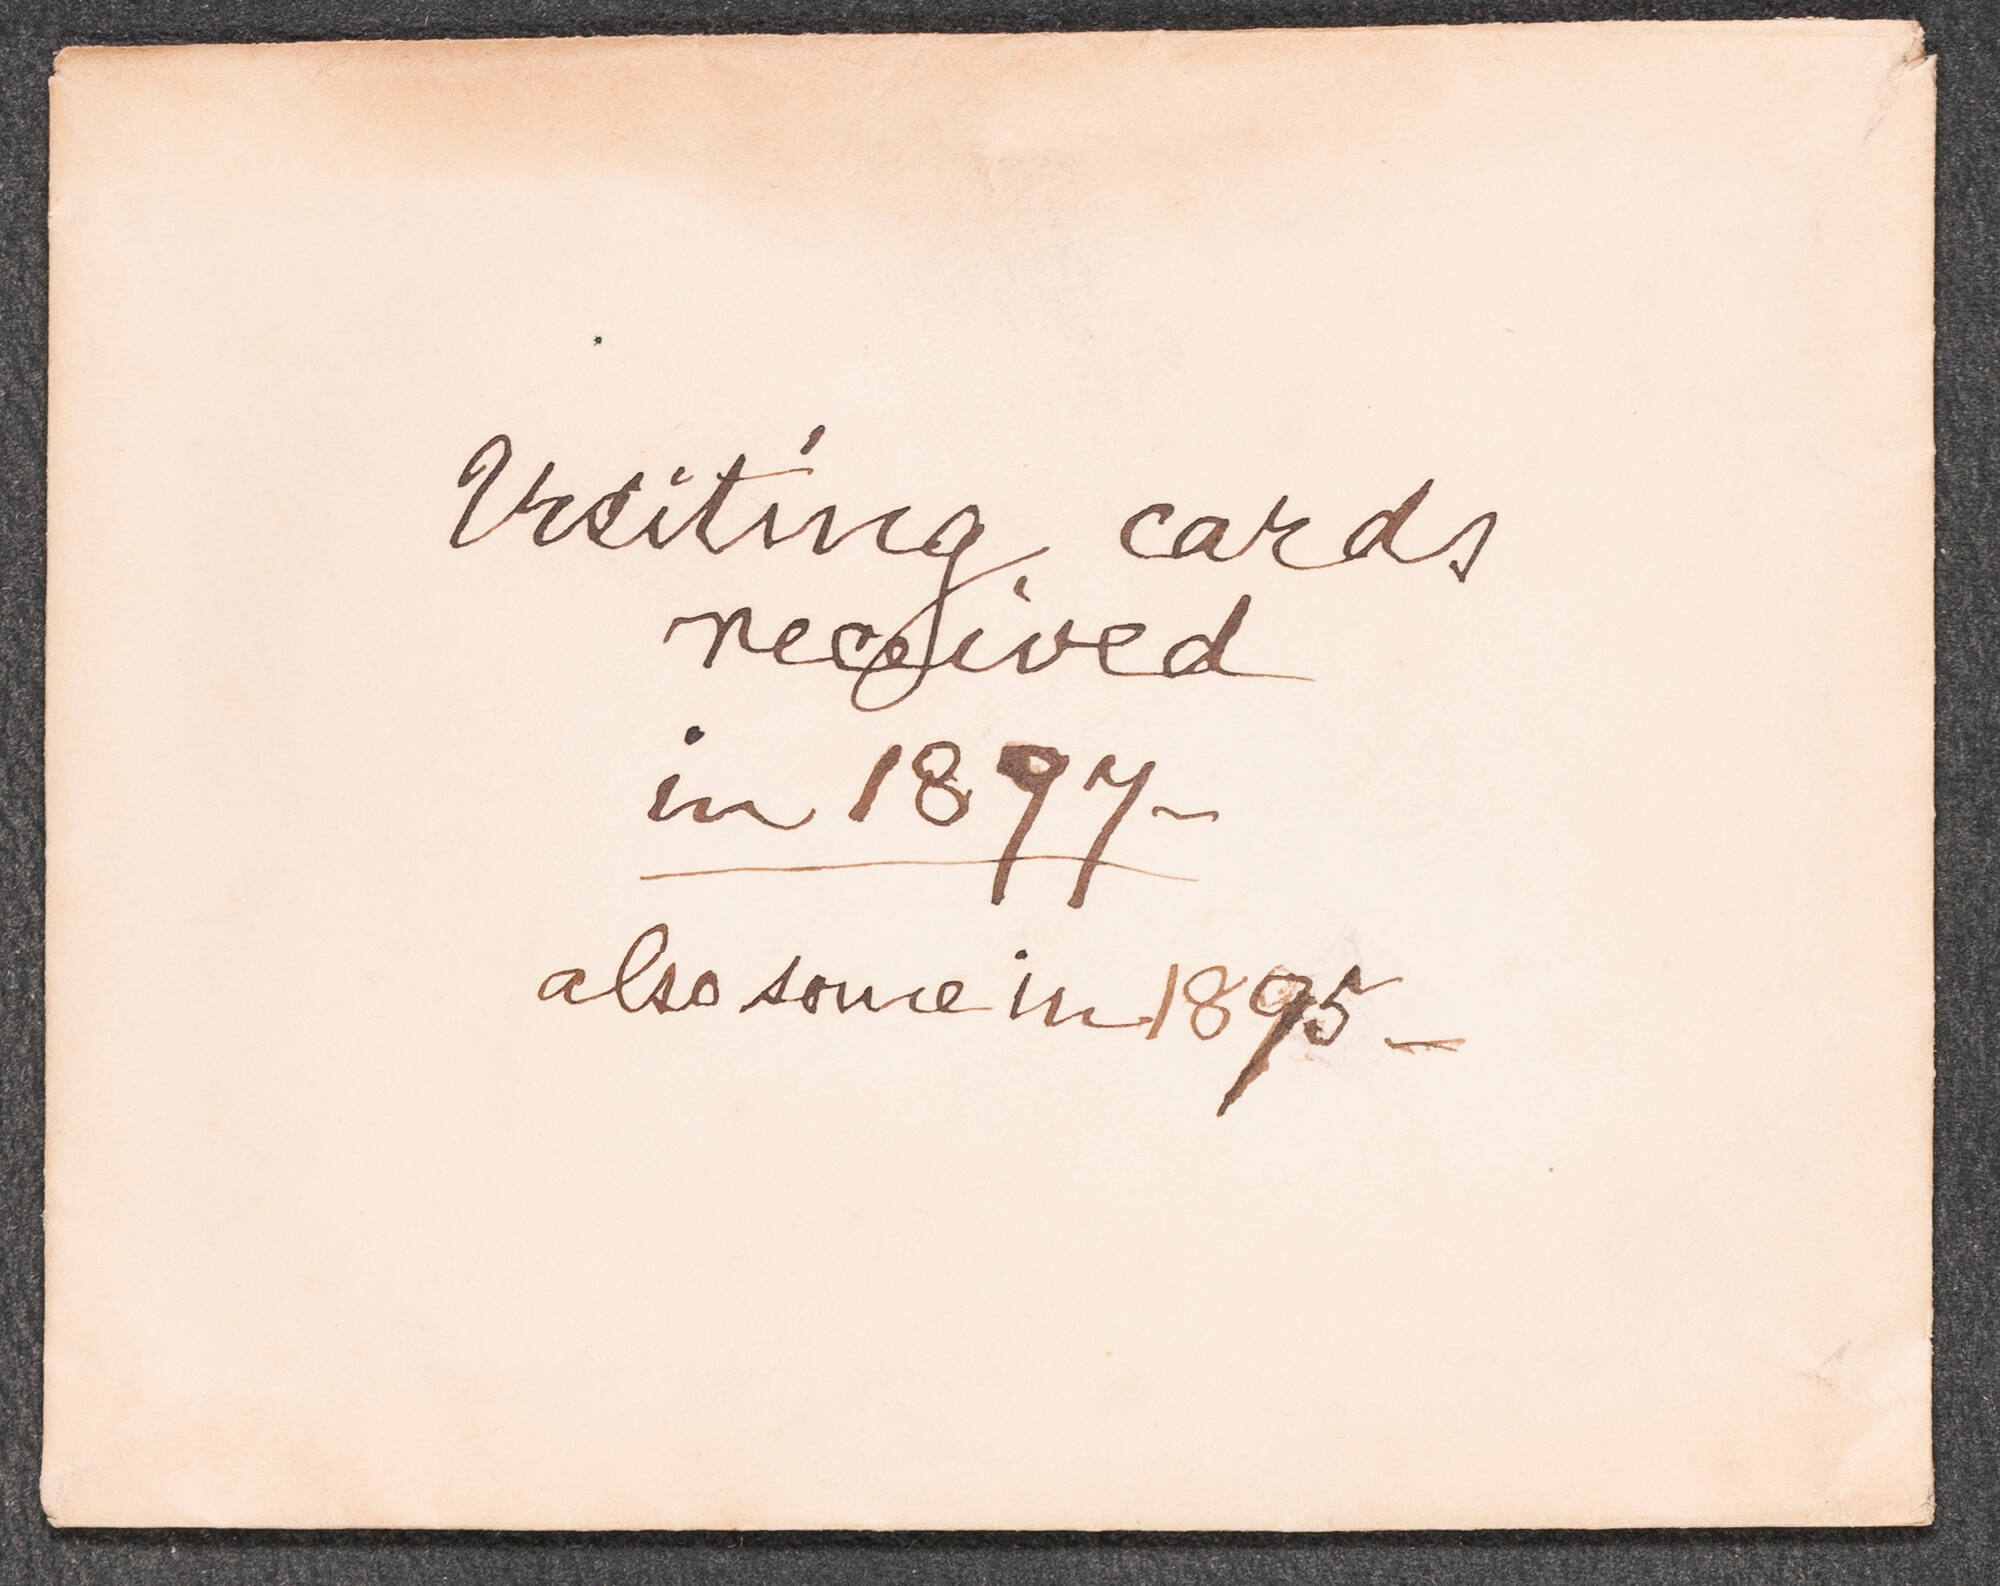 Visiting cards
received
in 1897 –
also some in 1895 –